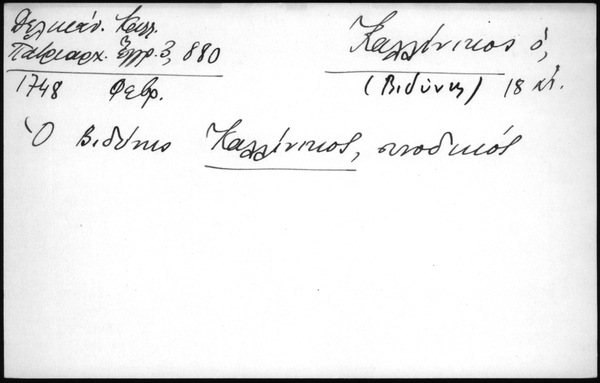 Δελικάν. Καλλ.
Πατριαρχ. Ἔγγρ. 3, 880
Καλλίνικος ὁ,
1748 Φεβρ.
(Βιδύνης) 18 αἰ.
Ὁ Βιδύνης Καλλίνικος, συνοδικός